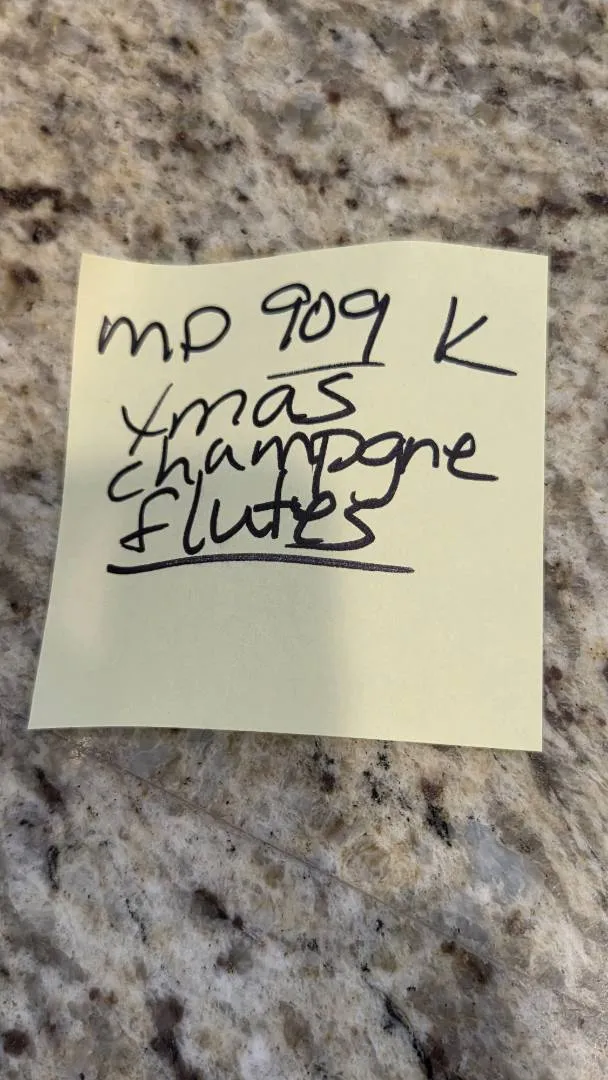 mp 909 K
xmas
champgne
flutes